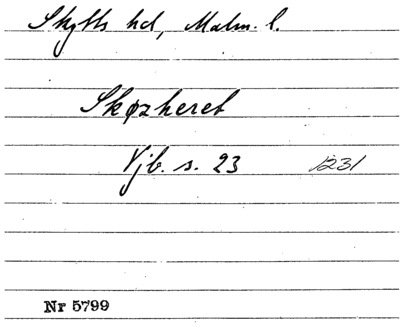 Skytts hd, Malm. l.
Skøzheret
Vjb. s. 23 1231
Nr 5799